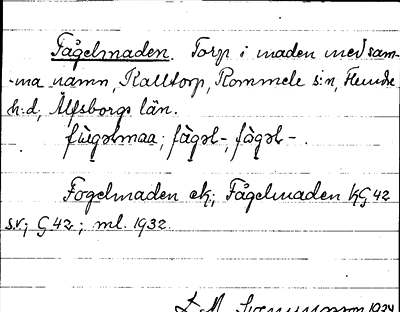 Fågelmaden. Torp i maden med sam-
-ma namn, Kalltorp, Rommele s:n, Flundre
h:d, Älfsborgs län.
fùgəlmaa; fàgəl-, fàgəl-.
Fogelmaden ek; Fågelmaden KG42
s.v; G42; ml. 1932.